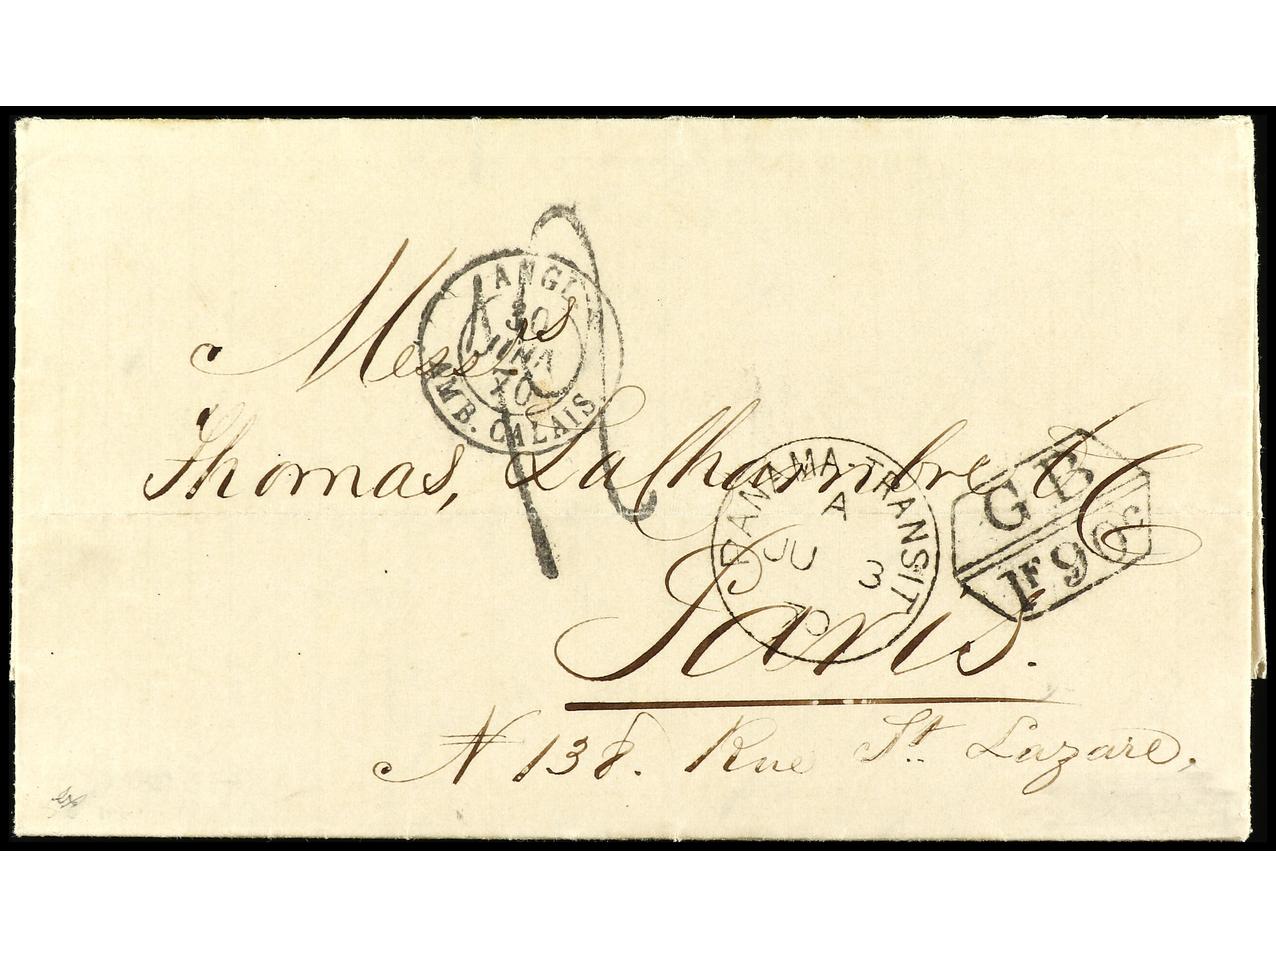 Mess^rs
Thomas, LaChambre & C^o
Paris.
N 138. Rue St. Lazare,
ANGL.
AMB. CALAIS
30
JUIN
70
PANAMA-TRANSIT
A
JU 3
70
GB
1F 90c